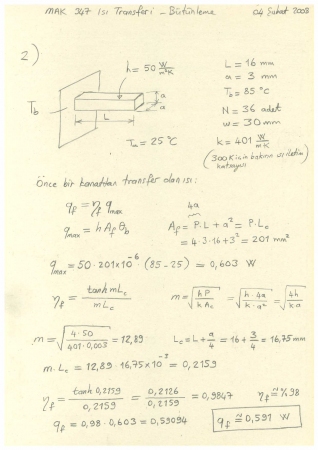 MAK 347 Isı Transferi - Bütünleme 04 Şubat 2008
2)
h = 50 W/m²K
L = 16 mm
a = 3 mm
T_b = 85 °C
N = 36 adet
w = 30 mm
T_b
a
a
L
T_∞ = 25 °C
k = 401 W/mK
(300 K için bakırın ısı iletim katsayısı)
Önce bir kanattan transfer olan ısı:
q_f = η_f q_max
4a
q_max = h A_f θ_b
A_f = P.L + a² = P.L_c
= 4·3·16 + 3² = 201 mm²
q_max = 50·201×10⁻⁶ (85-25) = 0,603 W
η_f = tanh mL_c / mL_c
m = √(hP / kA_c) = √(h·4a / k·a²) = √(4h / ka)
m = √(4·50 / 401·0,003) = 12,89
L_c = L + a/4 = 16 + 3/4 = 16,75 mm
m·L_c = 12,89·16,75×10⁻³ = 0,2159
η_f = tanh 0,2159 / 0,2159 = 0,2126 / 0,2159 = 0,9847
η_f ≅ %98
q_f = 0,98·0,603 = 0,59094
q_f ≅ 0,591 W